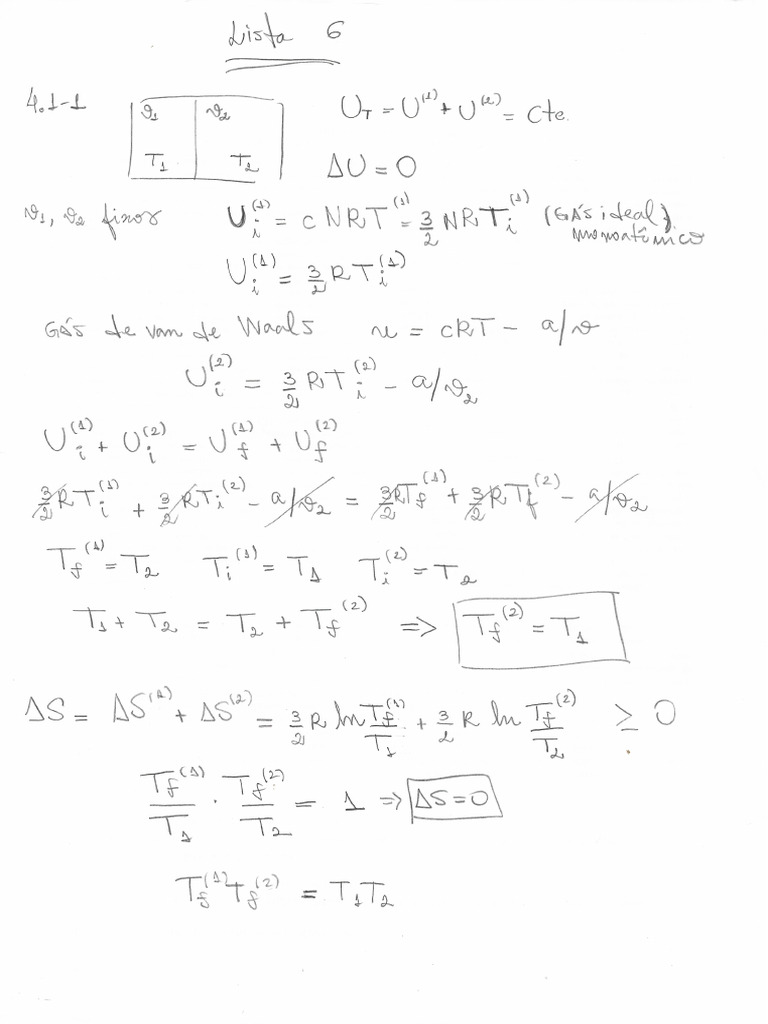 Lista 6
4.1-1
v₁ v₂
T₁ T₂
U_T = U⁽¹⁾ + U⁽²⁾ = cte.
ΔU = 0
v₁, v₂ fixos U_i⁽¹⁾ = cNRT⁽¹⁾ = 3/2 NRT_i⁽¹⁾ (Gás ideal) monoatômico
U_i⁽¹⁾ = 3/2 RT_i⁽¹⁾
Gás de van de Waals u = cRT - a/v
U_i⁽²⁾ = 3/2 RT_i⁽²⁾ - a/v₂
U_i⁽¹⁾ + U_i⁽²⁾ = U_f⁽¹⁾ + U_f⁽²⁾
3/2 RT_i⁽¹⁾ + 3/2 RT_i⁽²⁾ - a/v₂ = 3/2 RT_f⁽¹⁾ + 3/2 RT_f⁽²⁾ - a/v₂
T_f⁽¹⁾ = T₂ T_i⁽¹⁾ = T₁ T_i⁽²⁾ = T₂
T₁ + T₂ = T₂ + T_f⁽²⁾ => T_f⁽²⁾ = T₁
ΔS = ΔS⁽¹⁾ + ΔS⁽²⁾ = 3/2 R ln T_f⁽¹⁾/T₁ + 3/2 R ln T_f⁽²⁾/T₂ ≥ 0
T_f⁽¹⁾/T₁ · T_f⁽²⁾/T₂ = 1 => ΔS = 0
T_f⁽¹⁾T_f⁽²⁾ = T₁T₂